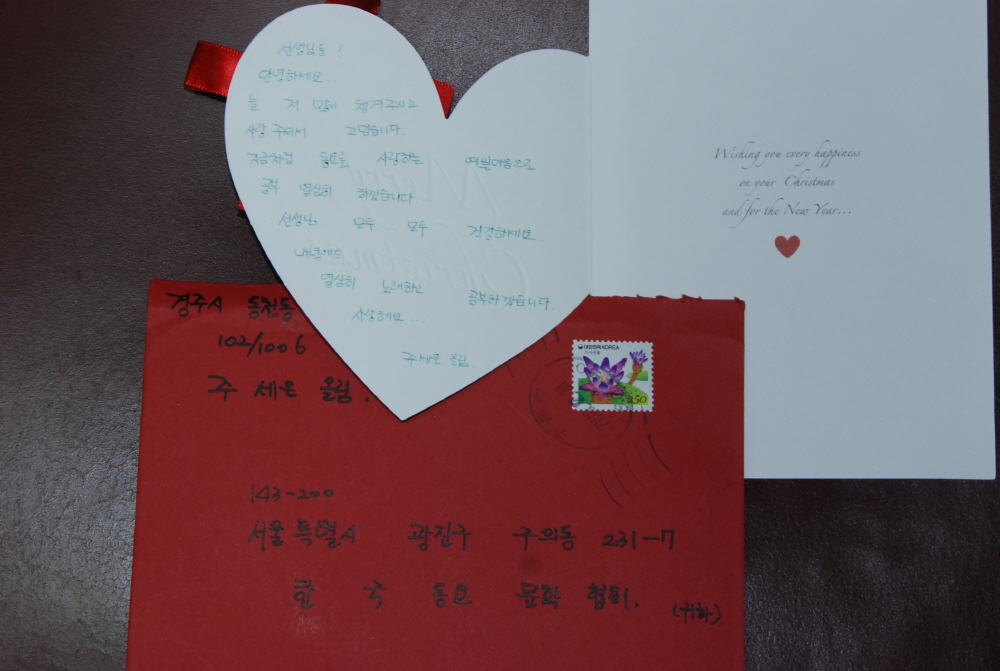 선생님들!
안녕하세요..
늘 저 많이 챙겨주시고
사랑 주셔서 고맙습니다.
지금처럼 동요를 사랑하는 예쁜마음으로
공부 열심히 하겠습니다
선생님 모두 모두 건강하세요.
내년에도
열심히 노래하고 공부하겠습니다.
사랑해요...
주세은 올림
Merry
Christmas
Wishing you every happiness
on your Christmas
and for the New Year...
경주시 동천동
102/1006
주세은 올림.
대한민국 KOREA
250
143-200
서울특별시 광진구 구의동 231-7
한국동요문화협회.
(귀하)